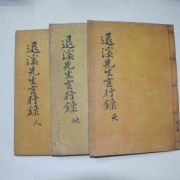 退溪先生言行錄 天
退溪先生言行錄 地
退溪先生言行錄 人